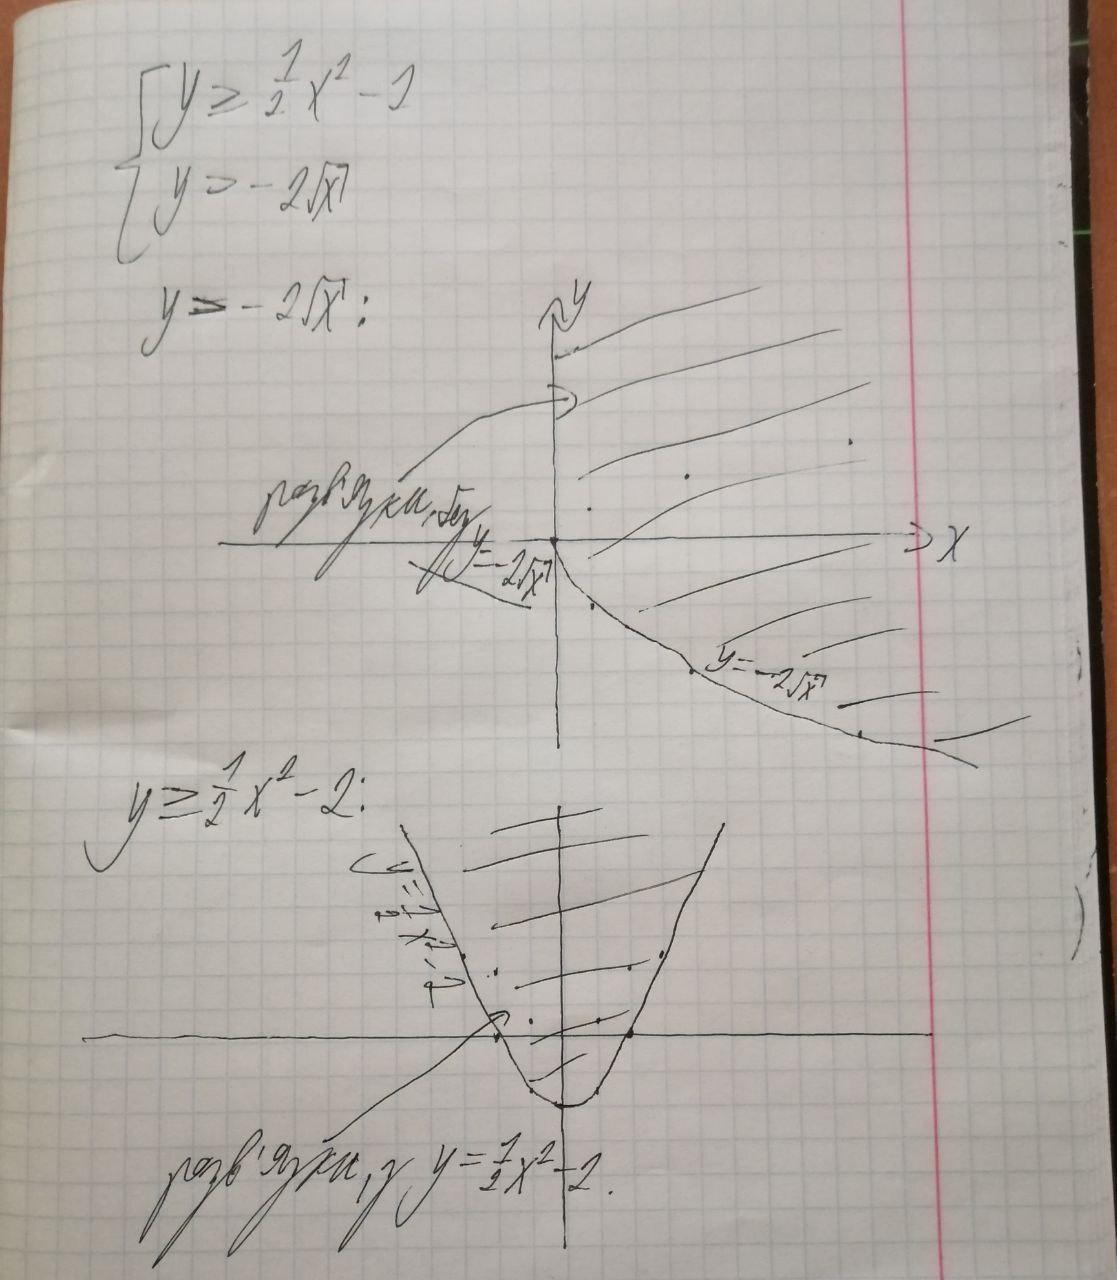 y ≥ 1/2 x² - 1
y > -2√x
y > -2√x :
y
розв'язки, без
y = -2√x
x
y = -2√x
y ≥ 1/2 x² - 2 :
y = 1/2 x² - 2
розв'язки, з y = 1/2 x² - 2.